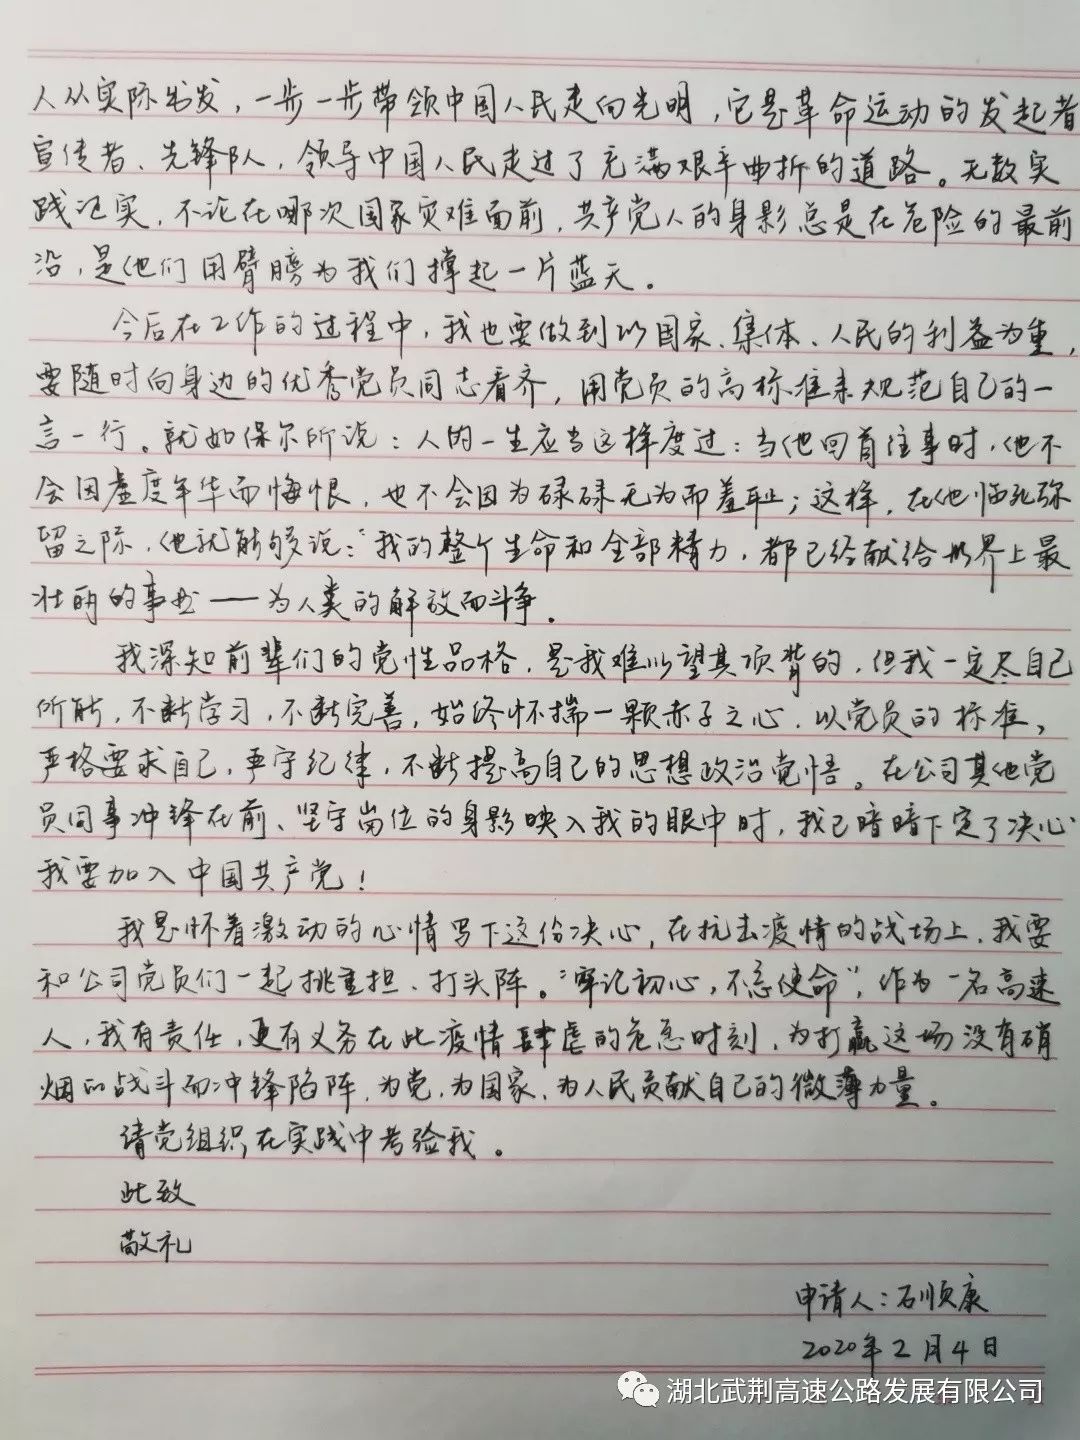 人从实际出发，一步一步带领中国人民走向光明，它是革命运动的发起者
宣传者、先锋队，领导中国人民走过了充满艰辛曲折的道路。无数实
践证实，不论在哪次国家灾难面前，共产党人的身影总是在危险的最前
沿，是他们用臂膀为我们撑起一片蓝天。
今后在工作的过程中，我也要做到以国家、集体、人民的利益为重，
要随时向身边的优秀党员同志看齐，用党员的高标准来规范自己的一
言一行。就如保尔所说：人的一生应当这样度过：当他回首往事时，他不
会因虚度年华而悔恨，也不会因为碌碌无为而羞耻；这样，在他临死弥
留之际，他就能够说：“我的整个生命和全部精力，都已经献给世界上最
壮丽的事业——为人类的解放而斗争。
我深知前辈们的党性品格，是我难以望其项背的，但我一定尽自己
所能，不断学习，不断完善，始终怀揣一颗赤子之心，以党员的标准，
严格要求自己，严守纪律，不断提高自己的思想政治觉悟。在公司其他党
员同事冲锋在前、坚守岗位的身影映入我的眼中时，我已暗暗下定了决心
我要加入中国共产党！
我是怀着激动的心情写下这份决心，在抗击疫情的战场上，我要
和公司党员们一起挑重担、打头阵。“牢记初心，不忘使命”，作为一名高速
人，我有责任，更有义务在此疫情肆虐的危急时刻，为打赢这场没有硝
烟的战斗而冲锋陷阵，为党，为国家，为人民贡献自己的微薄力量。
请党组织在实践中考验我。
此致
敬礼
申请人：石顺康
2020年2月4日
湖北武荆高速公路发展有限公司